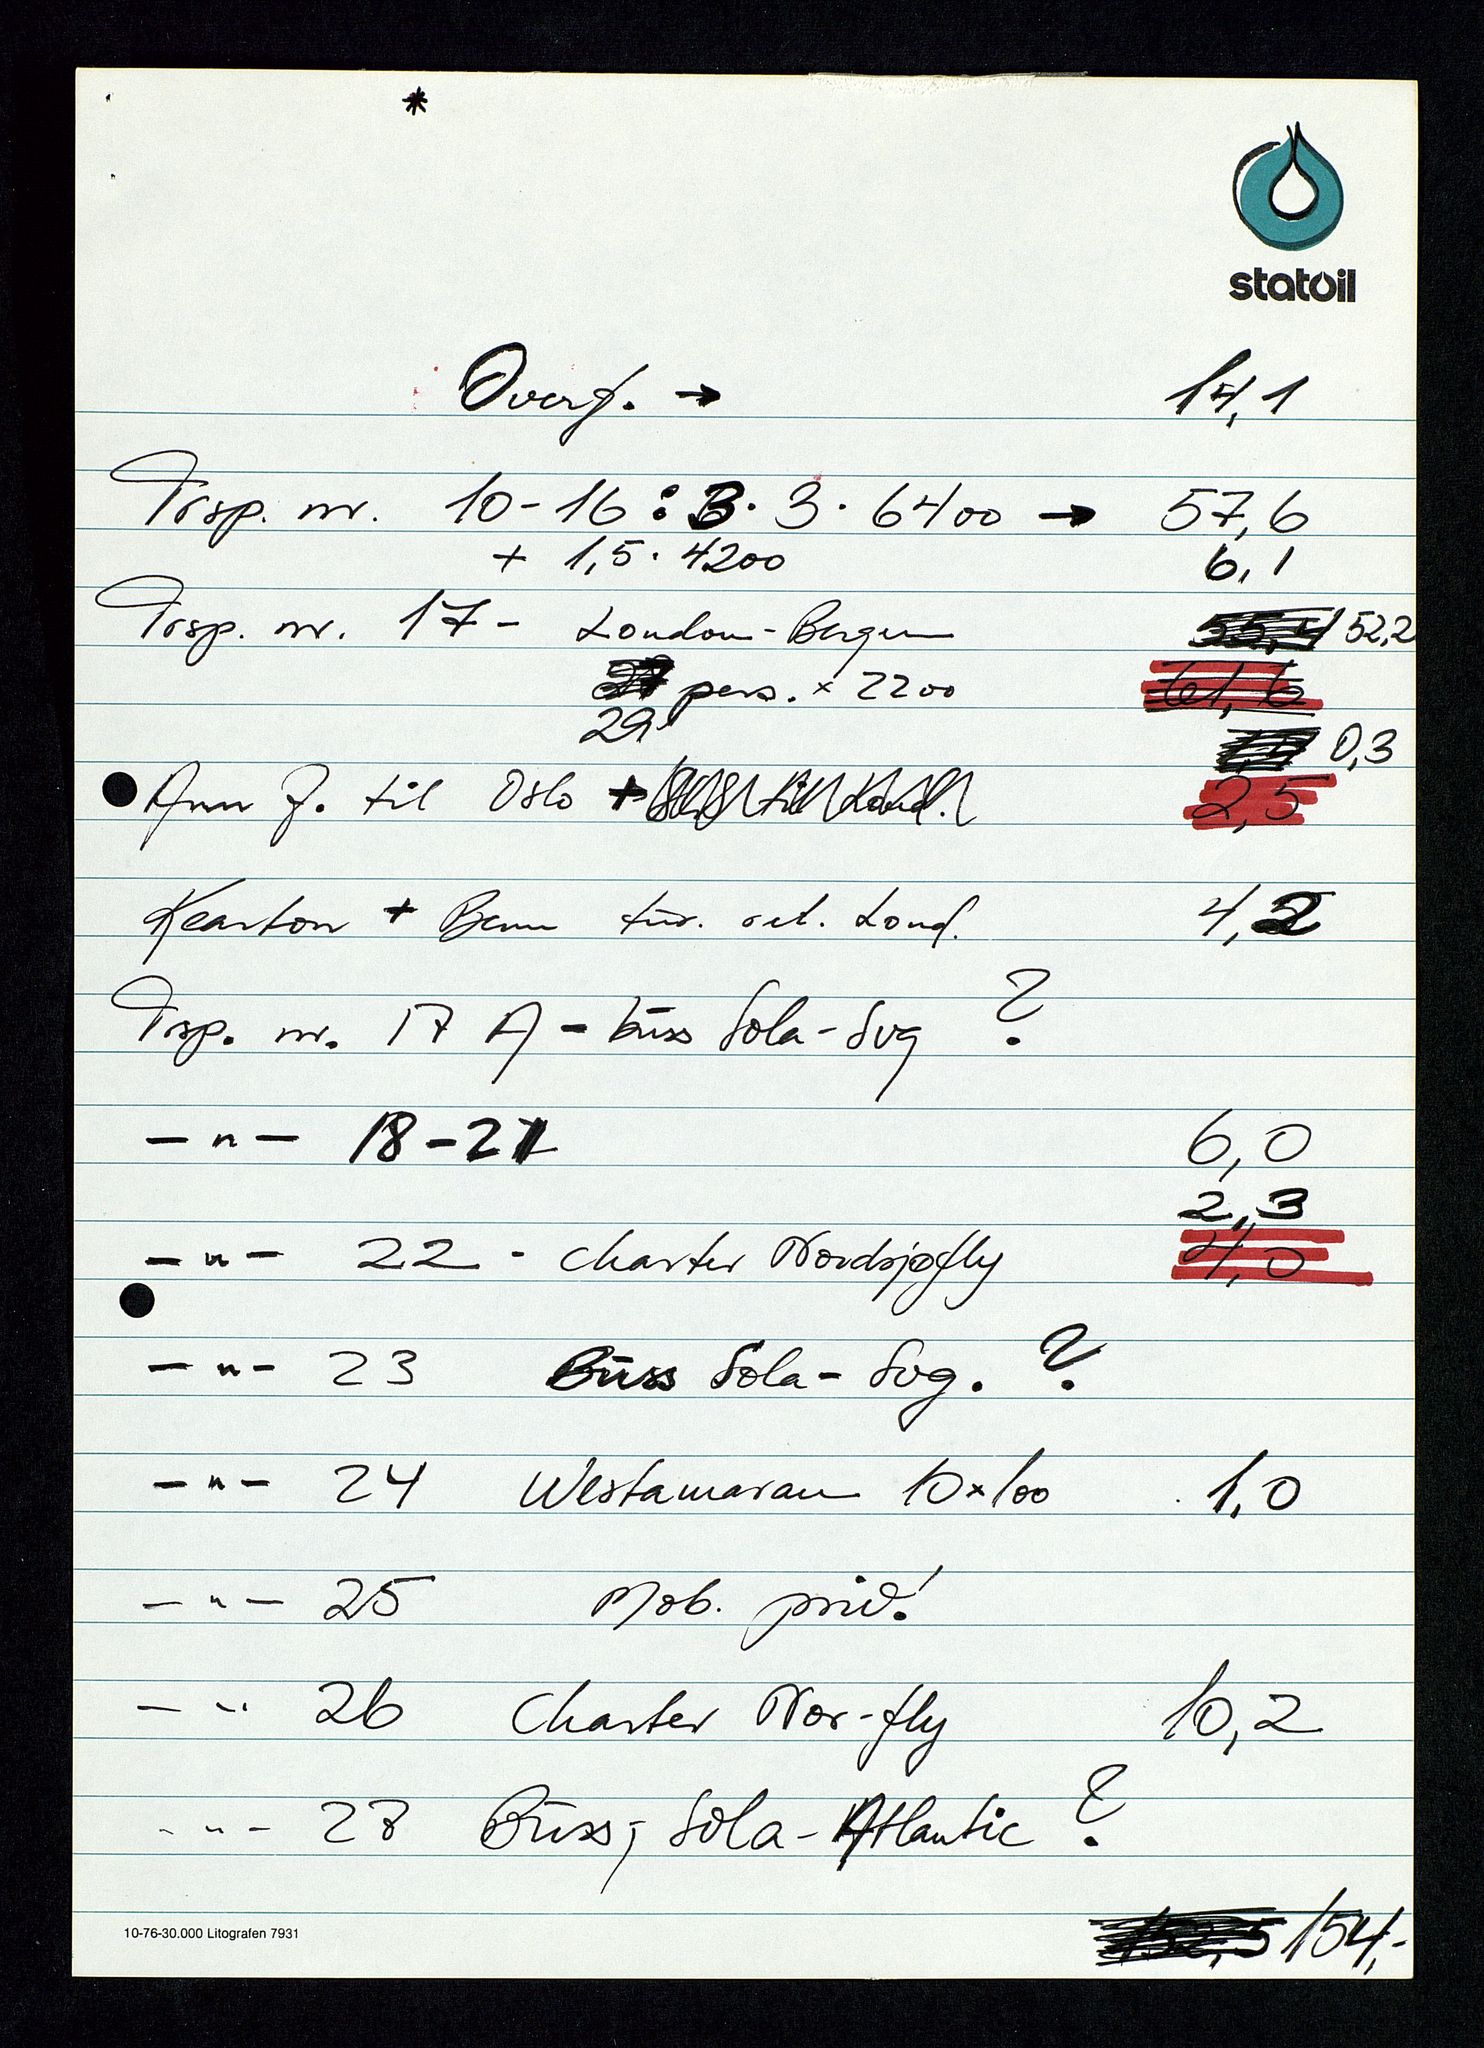 *
statoil
Overf. → 14,1
Trsp. nr. 10-16 : 3 · 3 · 6400 → 57,6
+ 1,5 · 4200 6,1
Trsp. nr. 17 - London-Bergen 55,4 52,2
pers. × 2200 61,6
29
0,3
Ann J. til Oslo + til Lond. 2,5
Kearton + Benn tur. ret. Lond. 4,2
Trsp. nr. 17 A - buss Sola-Svg ?
— " — 18-21 6,0
2,3
— " — 22 - Charter Nordsjøfly 4,0
— " — 23 Buss Sola - Svg. ?
— " — 24 Westamaran 10 × 100 1,0
— " — 25 Mob. priv!
— " 26 Charter Nor-fly 10,2
- " - 27 Buss, Sola - Atlantic ?
152,5 154,-
10-76-30.000 Litografen 7931